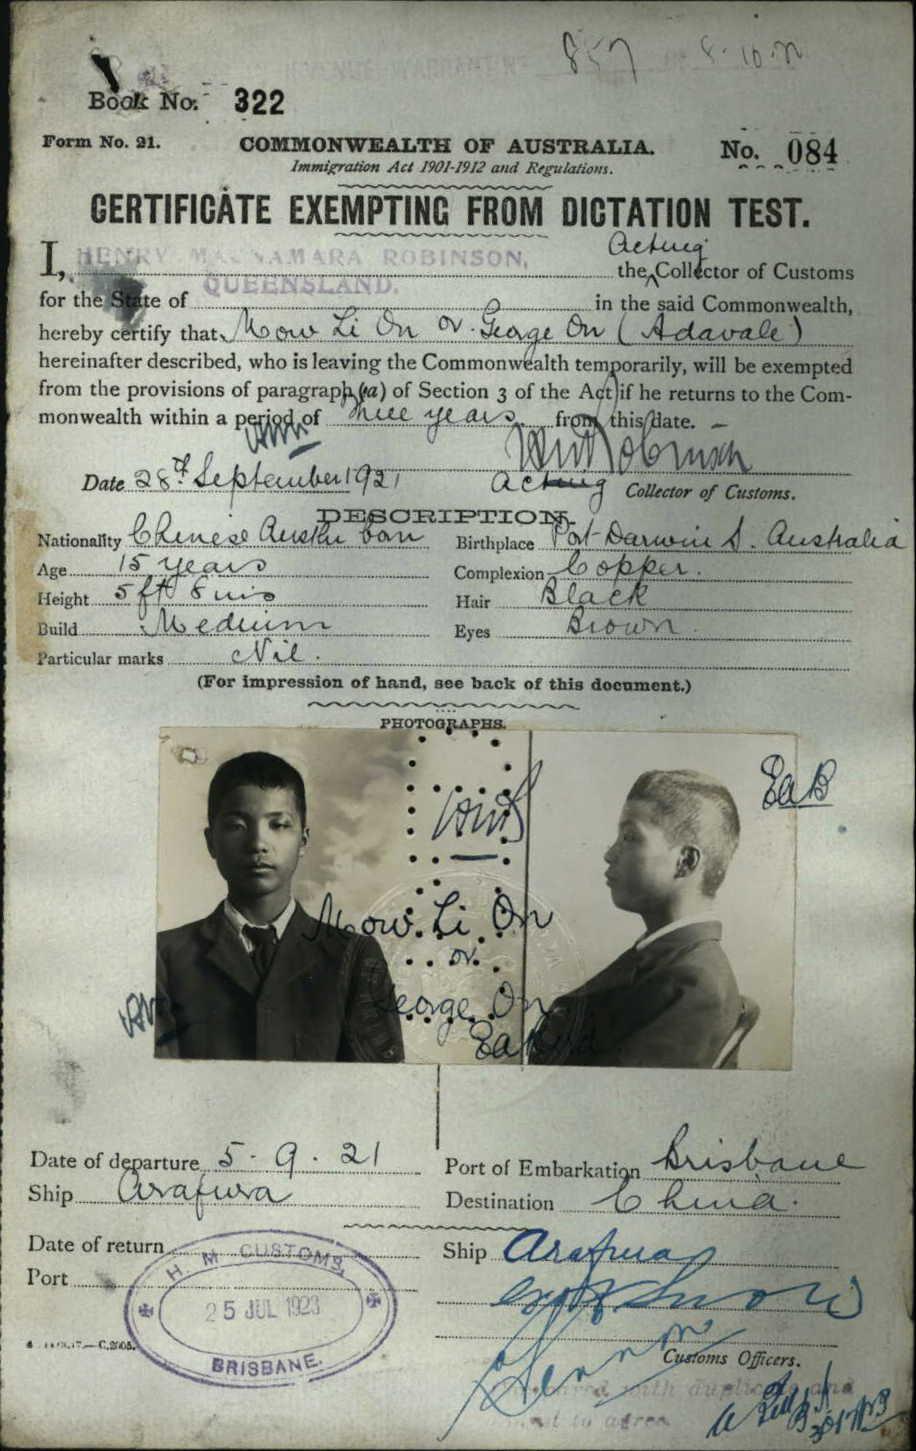 857 8-10-21
Book No. 322
Form No. 21. COMMONWEALTH OF AUSTRALIA. No. 084
Immigration Act 1901-1912 and Regulations.
CERTIFICATE EXEMPTING FROM DICTATION TEST.
Acting
I, HENRY MACNAMARA ROBINSON, the Collector of Customs
QUEENSLAND.
for the State of in the said Commonwealth,
hereby certify that Mow Li On or George On (Adavale)
hereinafter described, who is leaving the Commonwealth temporarily, will be exempted
from the provisions of paragraph (a) of Section 3 of the Act if he returns to the Com-
monwealth within a period of three years from this date.
Date 28th September 1921 Acting Collector of Customs.
DESCRIPTION.
Nationality Chinese Austrn born Birthplace Port Darwin S. Australia
Age 15 years Complexion Copper.
Height 5 ft 8 ins Hair Black
Build Medium Eyes Brown.
Particular marks Nil.
(For impression of hand, see back of this document.)
PHOTOGRAPHS.
Mow Li On
or
George On
Date of departure 5.9.21 Port of Embarkation Brisbane
Ship Arafura Destination China.
Date of return Ship Arafura
Port
H. M CUSTOMS,
25 JUL 1923
BRISBANE.
Customs Officers.